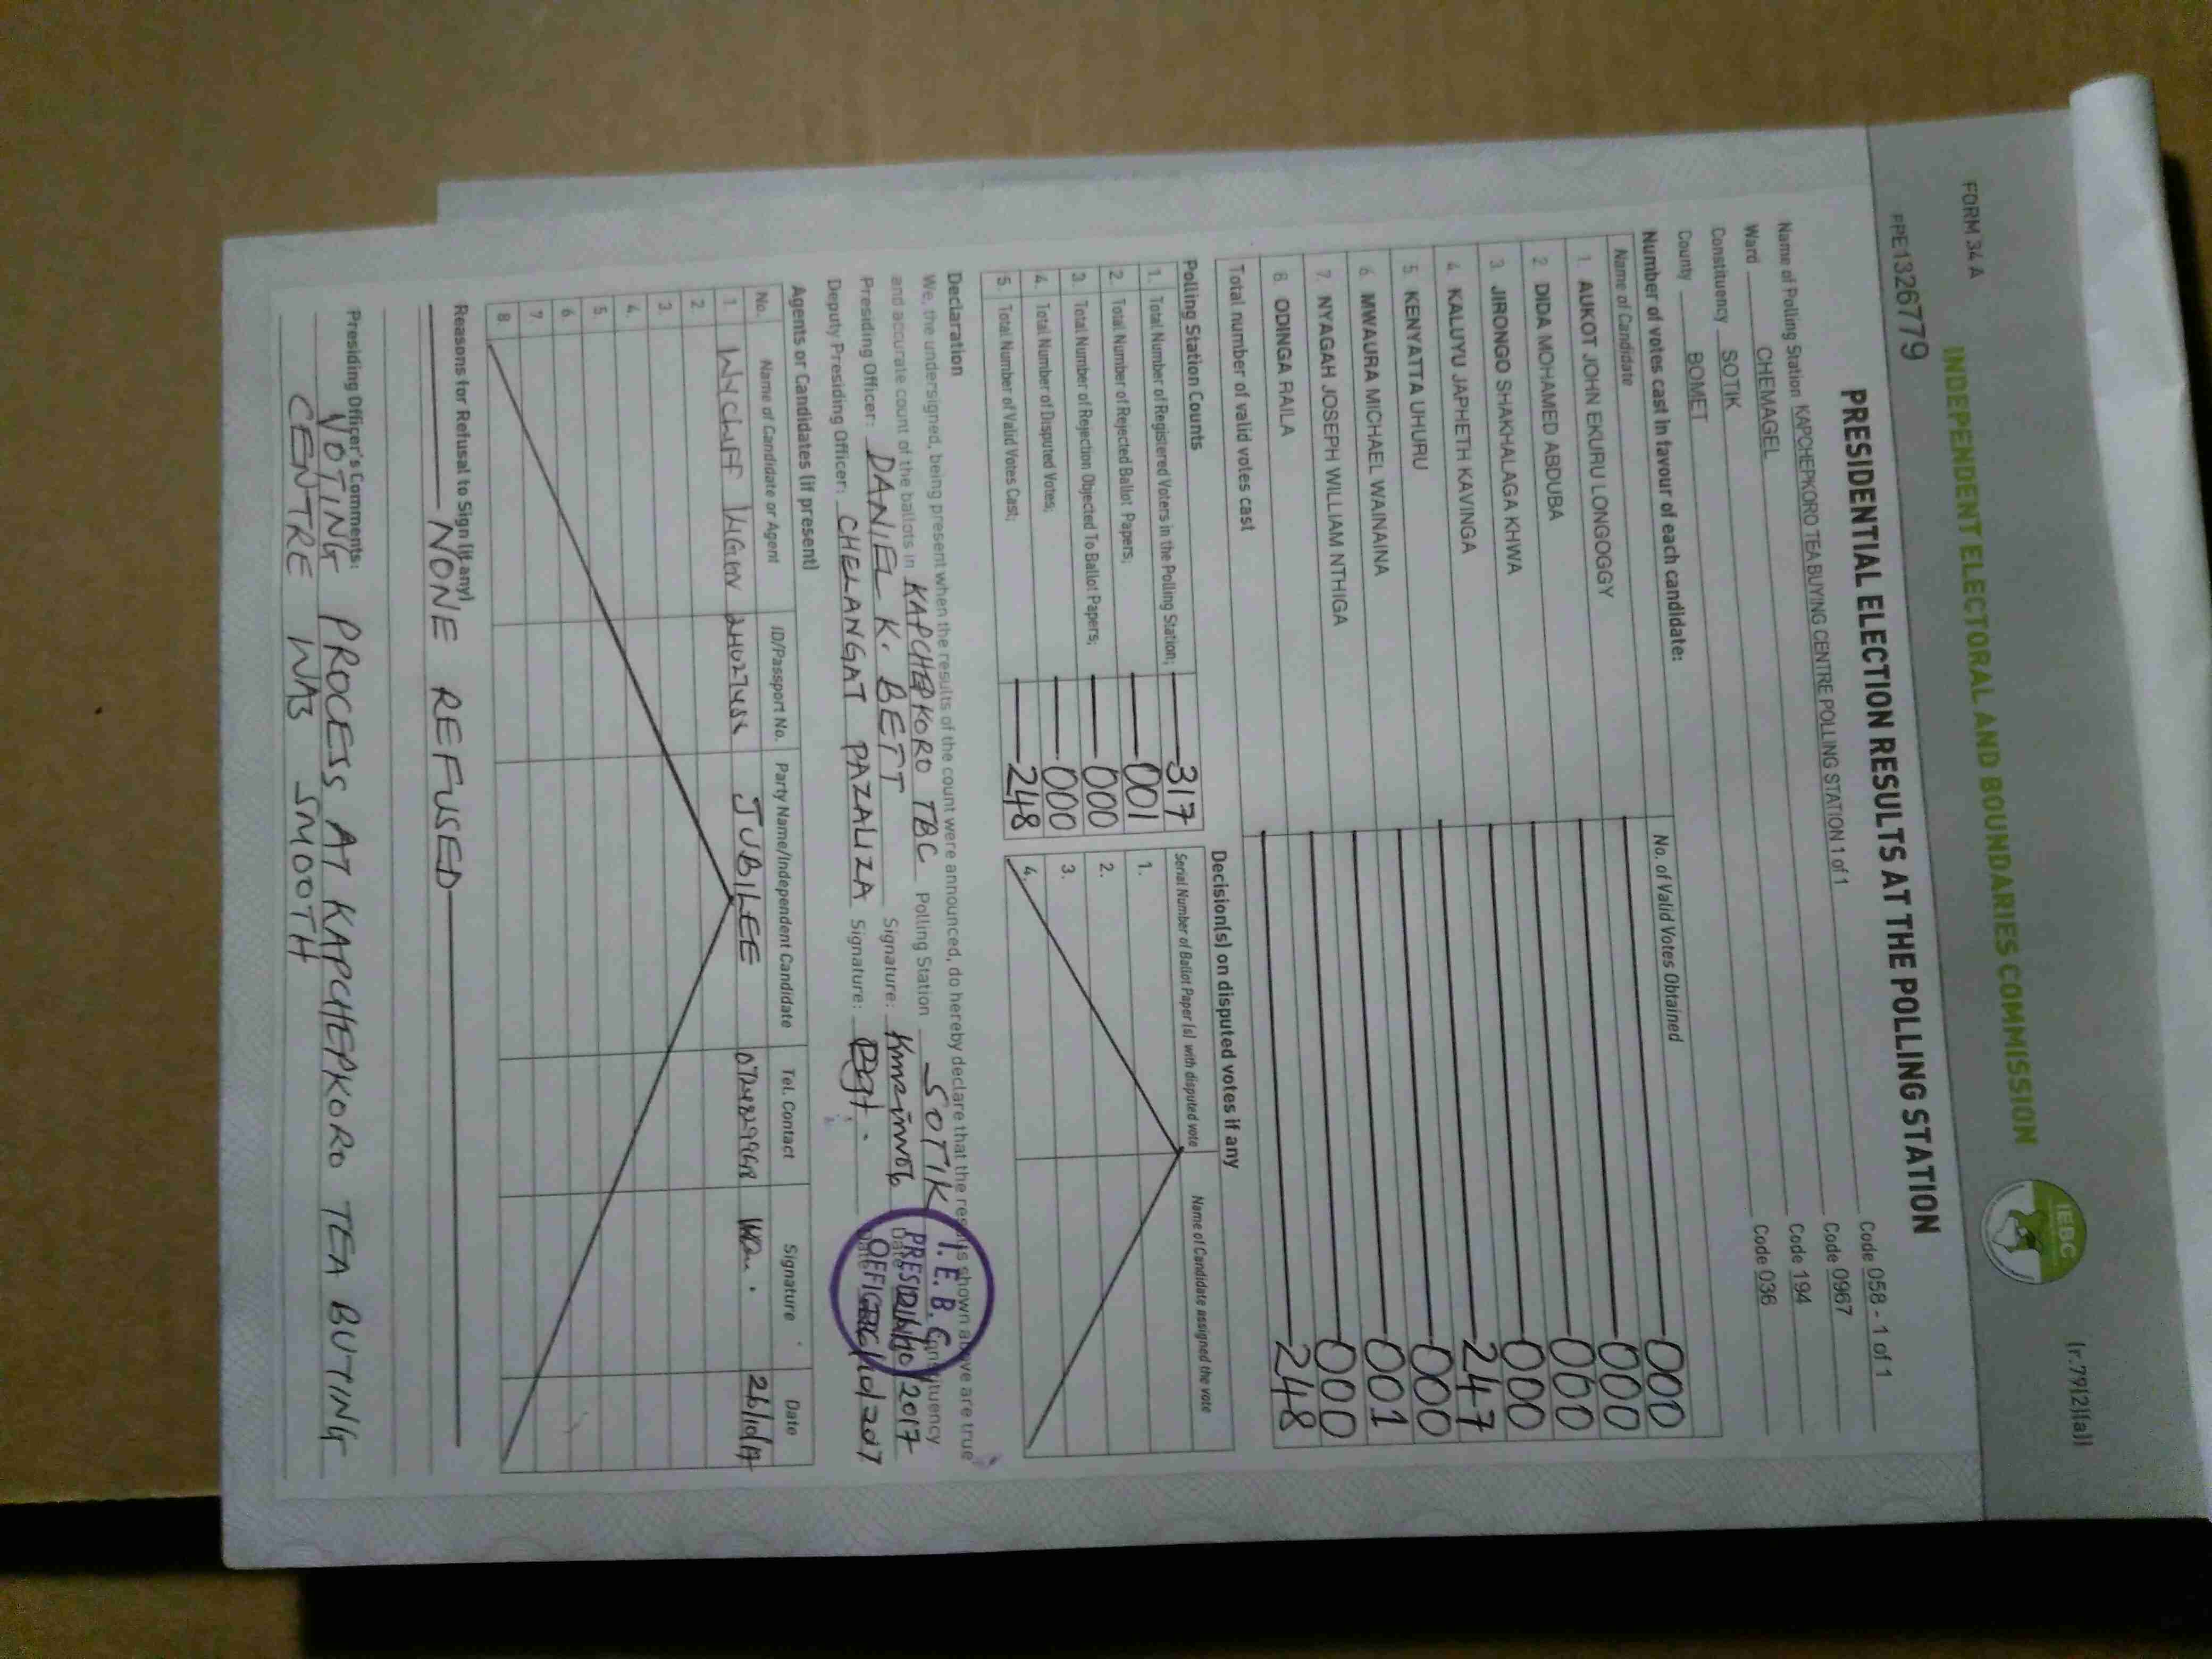 FORM 34 A
(r.79(2)(a))
INDEPENDENT ELECTORAL AND BOUNDARIES COMMISSION
IEBC
PPE1326779
PRESIDENTIAL ELECTION RESULTS AT THE POLLING STATION
Name of Polling Station KAPCHEPKORO TEA BUYING CENTRE POLLING STATION 1 of 1 Code 058 - 1 of 1
Ward CHEMAGEL Code 0967
Constituency SOTIK Code 194
County BOMET Code 036
Number of votes cast in favour of each candidate:
Name of Candidate No. of Valid Votes Obtained
1. AUKOT JOHN EKURU LONGOGGY 000
2. DIDA MOHAMED ABDUBA 000
3. JIRONGO SHAKHALAGA KHWA 000
4. KALUYU JAPHETH KAVINGA 000
5. KENYATTA UHURU 247
6. MWAURA MICHAEL WAINAINA 000
7. NYAGAH JOSEPH WILLIAM NTHIGA 001
8. ODINGA RAILA 000
Total number of valid votes cast 248
Polling Station Counts
1. Total Number of Registered Voters in the Polling Station; 317
2. Total Number of Rejected Ballot Papers; 001
3. Total Number of Rejection Objected To Ballot Papers; 000
4. Total Number of Disputed Votes; 000
5. Total Number of Valid Votes Cast; 248
Decision(s) on disputed votes if any
Serial Number of Ballot Paper (s) with disputed vote Name of Candidate assigned the vote
1.
2.
3.
4.
Declaration
We, the undersigned, being present when the results of the count were announced, do hereby declare that the results shown above are true
and accurate count of the ballots in KAPCHEPKORO TBC Polling Station SOTIK Constituency
Presiding Officer: DANIEL K. BETT Signature: Date 2017
Deputy Presiding Officer: CHELANGAT PAZALIZA Signature: Date 2017
I.E.B.C
PRESIDING
OFFICER
Agents or Candidates (if present)
No. Name of Candidate or Agent ID/Passport No. Party Name/Independent Candidate Tel. Contact Signature Date
1 JUBILEE 26/10/17
2
3.
4.
5
6.
7.
8.
Reasons for Refusal to Sign (if any)
NONE REFUSED
Presiding Officer's Comments:
VOTING PROCESS AT KAPCHEPKORO TEA BUTING
CENTRE WAS SMOOTH